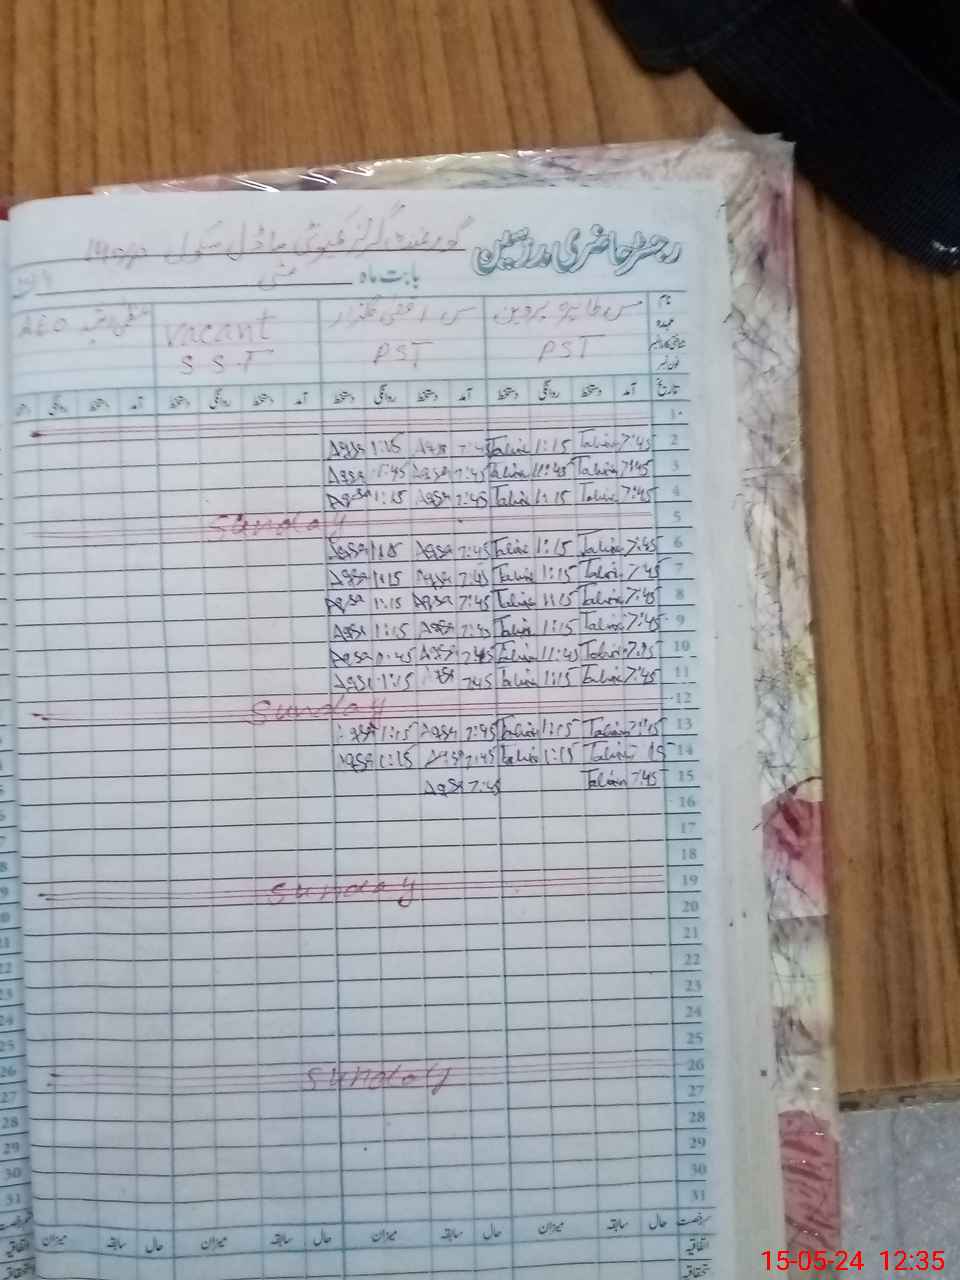 رجسٹر حاضری مدرسین گورنمنٹ گرلز کمیونٹی ماڈل سکول
بابت ماہ مئی
نام مس طاہرہ پروین مس اقصیٰ گلزار vacant AEO
عہدہ PST PST S S T
تاریخ آمد دستخط روانگی دستخط آمد دستخط روانگی دستخط آمد دستخط روانگی دستخط آمد دستخط روانگی دستخط
1
2 7:45 Tahira 1:15 Tahira 7:45 Aqsa 1:15 Aqsa
3 7:45 Tahira 11:45 Tahira 7:45 Aqsa 11:45 Aqsa
4 7:45 Tahira 1:15 Tahira 7:45 Aqsa 1:15 Aqsa
5 Sunday
6 7:45 Tahira 1:15 Tahira 7:45 Aqsa 1:15 Aqsa
7 7:45 Tahira 1:15 Tahira 7:45 Aqsa 1:15 Aqsa
8 7:45 Tahira 1:15 Tahira 7:45 Aqsa 1:15 Aqsa
9 7:45 Tahira 1:15 Tahira 7:45 Aqsa 1:15 Aqsa
10 Tahira 11:45 Tahira 7:45 Aqsa 11:45 Aqsa
11 7:45 Tahira 1:15 Tahira 7:45 Aqsa 1:15 Aqsa
12 Sunday
13 7:45 Tahira 1:15 Tahira 7:45 Aqsa 1:15 Aqsa
14 Tahira 1:15 Tahira 7:45 Aqsa 1:15 Aqsa
15 7:45 Tahira 7:45 Aqsa
16
17
18
19 Sunday
20
21
22
23
24
25
26 Sunday
27
28
29
30
31
رخصت حال سابقہ میزان حال سابقہ میزان حال سابقہ میزان حال سابقہ میزان
اتفاقیہ
استحقاقیہ
15-05-24 12:35